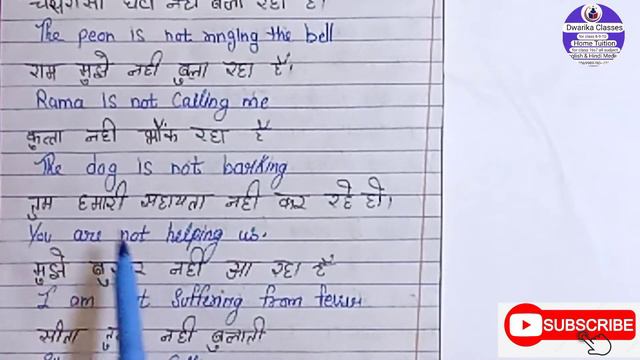 चपरासी घंटी नहीं बजा रहा है।
The peon is not ringing the bell
राम मुझे नहीं बुला रहा है।
Rama is not Calling me
कुत्ता नहीं भौंक रहा है
The dog is not barking
तुम हमारी सहायता नहीं कर रहे हो।
You are not helping us.
मुझे नहीं आ रहा है
I am suffering from
सीता नहीं बुलाती
Dwarika Classes
Home Tuition
SUBSCRIBE